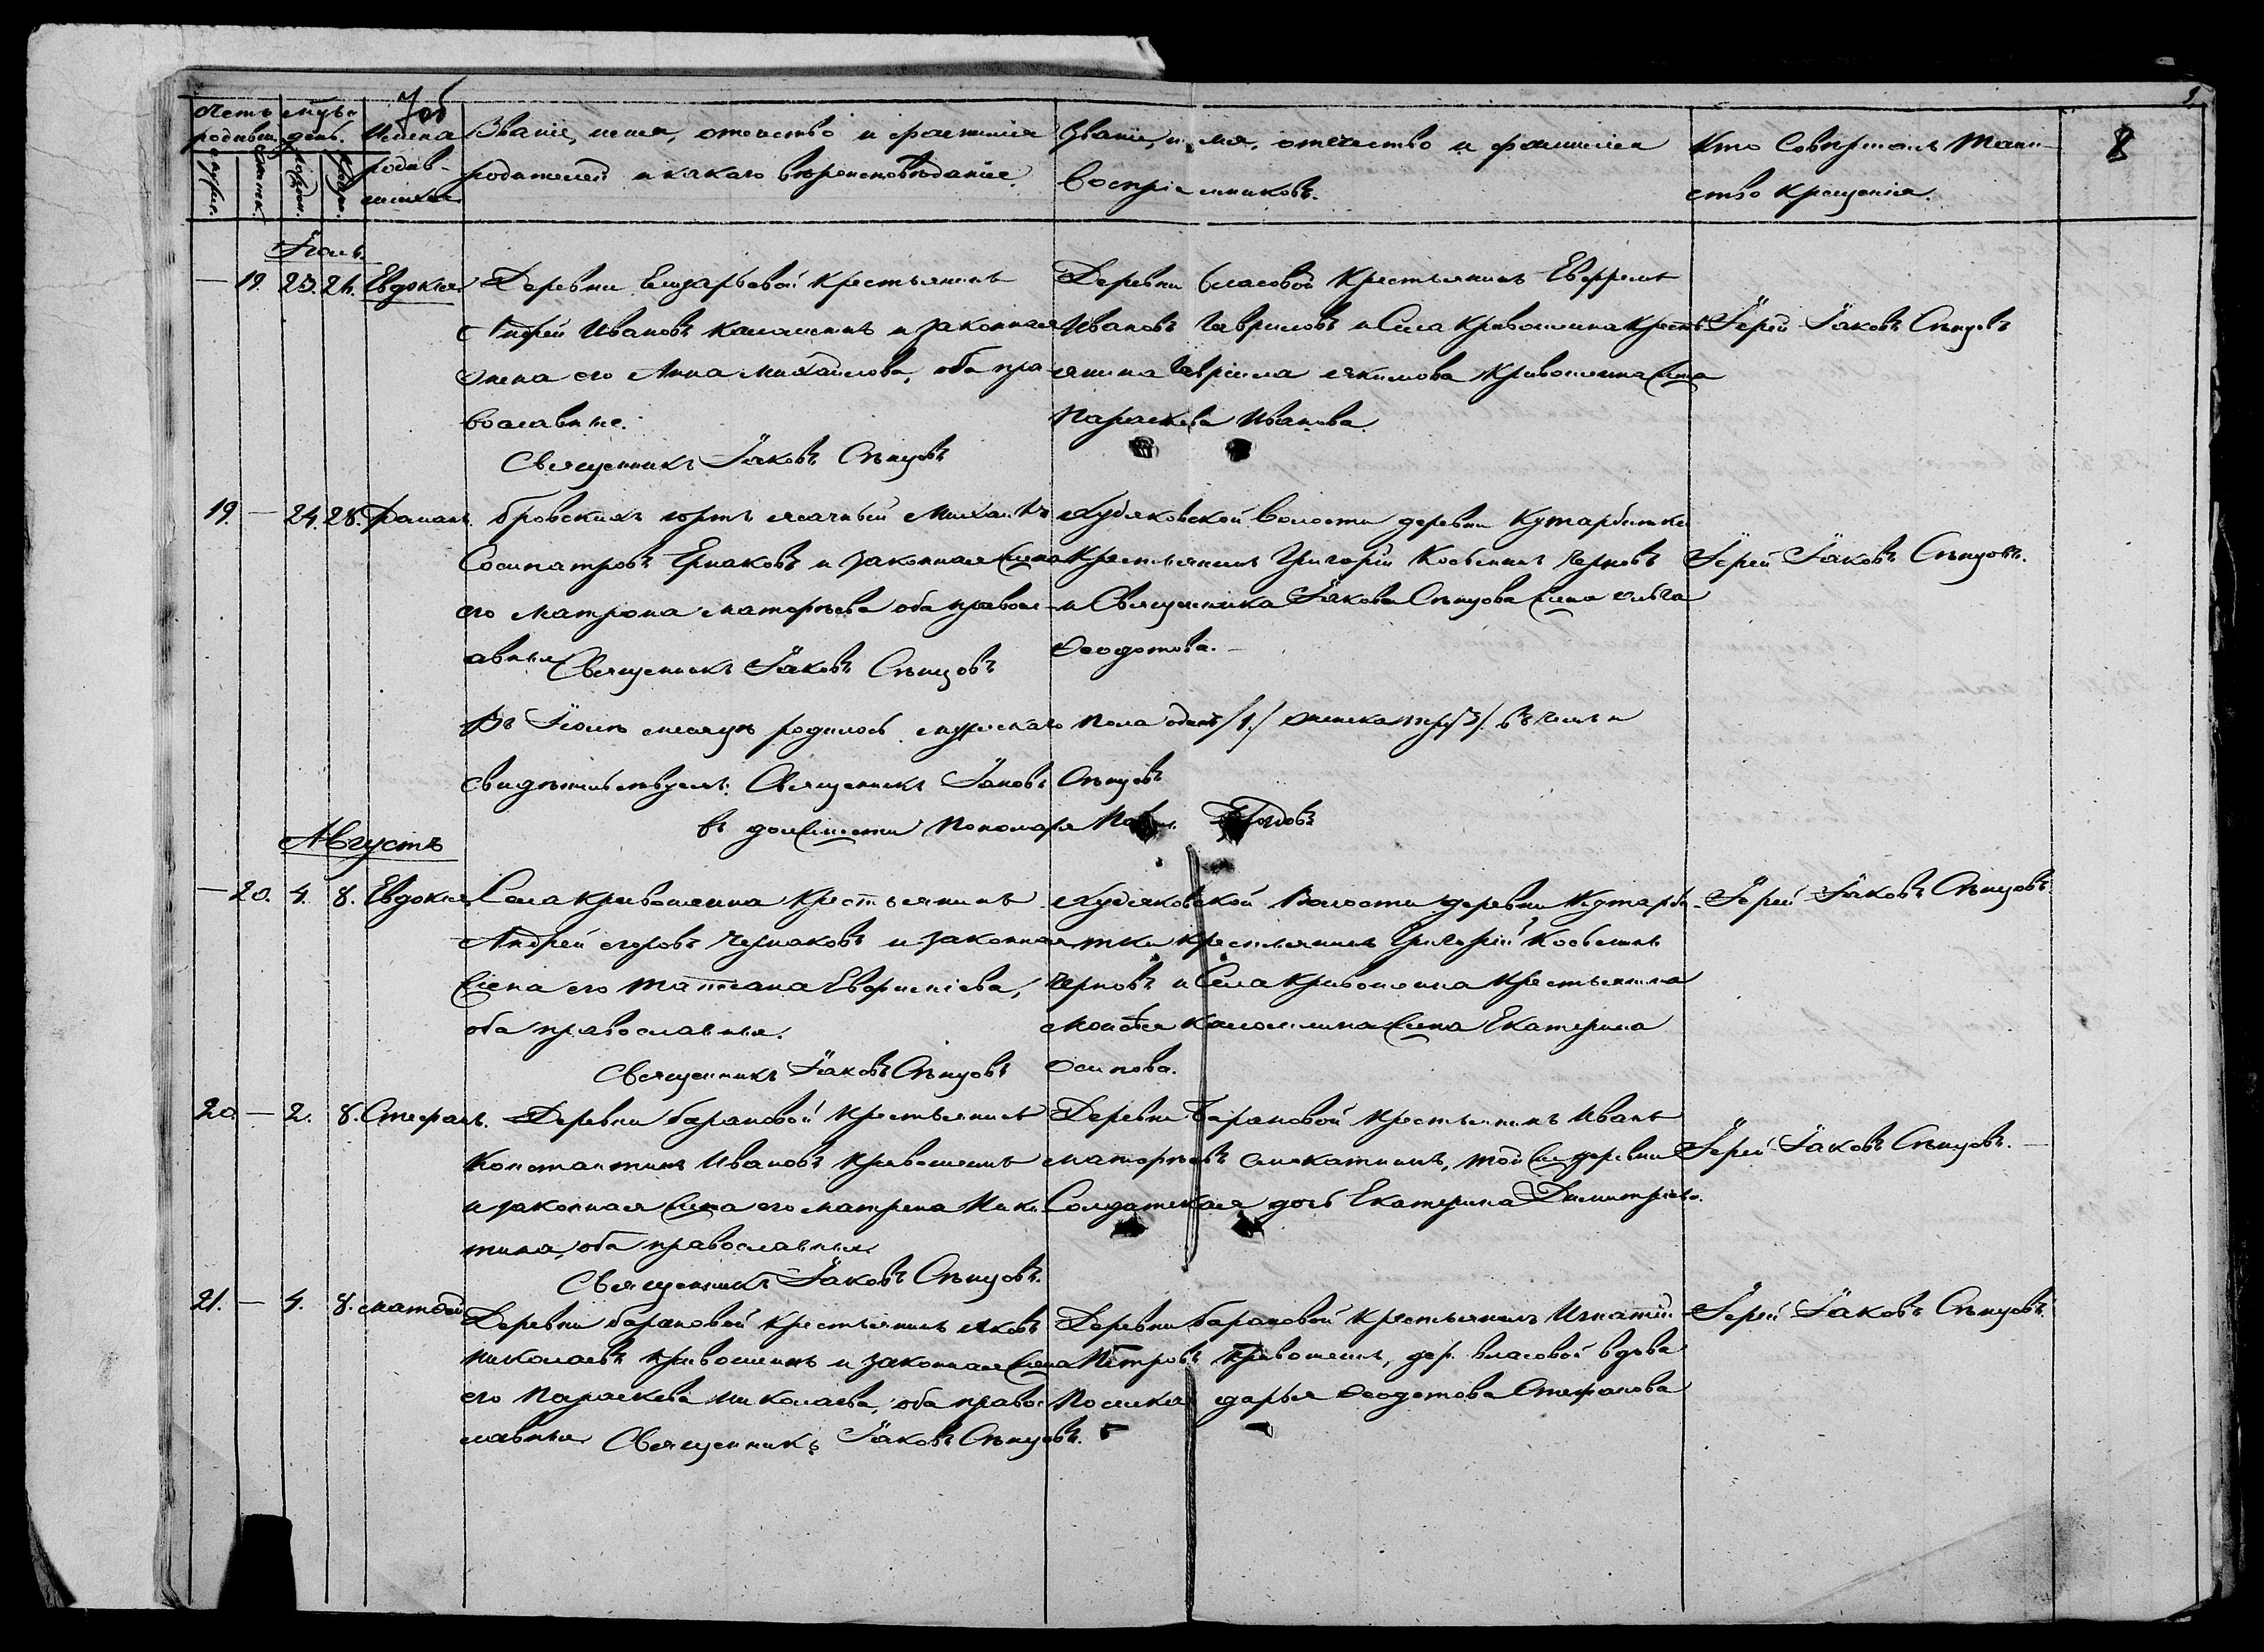 7об
8
Счетъ родивш. мѣся. день. Имена родив-шихся
Званіе, имя, отечество и фамилія родителей и какаго вѣроисповѣданія.
Званіе, имя, отечество и фамилія воспріемниковъ.
Кто совершалъ таин-ство крещенія.
мужес. женск. рожден. крещен.
Іюль.
— 19. 23. 24. Евдокія
Деревни Елизарьевой крестьянинъ
Андрей Ивановъ Калашинъ и законная
жена его Анна Михайлова, оба пра-
вославные.
Священникъ Іаковъ Слѣпцовъ
Деревни Власовой крестьянинъ
Ивановъ Гавриловъ и Села Кривошеина кресть-
янина Гавріила Якимова Кривошеина жена
Параскева Иванова.
Іерей Іаковъ Слѣпцовъ
19. — 24. 28. Романъ.
юртъ ясачный Михаилъ
Сосипатровъ Ермаковъ и законная жена
его Матрона Матѳеева оба правосл-
авныя Священникъ Іаковъ Слѣпцовъ
Худяковской волости деревни Кутарбитки
крестьянинъ Григорій Косьминъ Черновъ
и Священника Іакова Слѣпцова жена Ольга
Ѳеодотова.
Іерей Іаковъ Слѣпцовъ.
Въ Іюлѣ месяцѣ родилось мужескаго пола одинъ /1./ женска три /3/. въ чемъ и
свидѣтельствуемъ: Священникъ Іаковъ Слѣпцовъ
въ должности Пономаря
Августъ
— 20. 4. 8. Евдокія
Села Кривошеина крестьянинъ
Андрей Егоровъ Чермаковъ и законная
жена его Татіана Евфиміева,
оба православныя.
Священникъ Іаковъ Слѣпцовъ
Худяковской Волости деревни Кутарби-
тки крестьянинъ Григорій Косьминъ
Черновъ и Села Кривошеина крестьянина
Моисея Калашина жена Екатерина
Осипова.
Іерей Іаковъ Слѣпцовъ.
20. — 2. 8. Стефанъ.
Деревни Барановой крестьянинъ
Константинъ Ивановъ Кривошеинъ
и законная жена его Матрена Ники-
тина, оба православныя
Священникъ Іаковъ Слѣпцовъ.
Деревни Барановой крестьянинъ Иванъ
Матѳеевъ Слинкинъ, той же деревни
Солдатская дочь Екатерина Димитріева.
Іерей Іаковъ Слѣпцовъ. —
21. — 4. 8. Матѳей
Деревни Барановой крестьянинъ Яковъ
Николаевъ Кривошеинъ и законная жена
его Параскева Николаева, оба правос-
лавныя Священникъ Іаковъ Слѣпцовъ.
Деревни Барановой крестьянинъ Игнатій
Петровъ Кривошеинъ, дер. Власовой вдова
Дарья Ѳеодотова Стефанова
Іерей Іаковъ Слѣпцовъ.